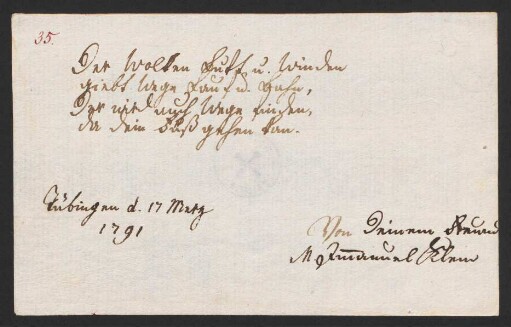 35.
Der Wolken Luft u. Winden
giebt Wege Lauf u. Bahn,
Der wird auch Wege finden,
da dein Fuß gehen kan.
Tübingen d. 17 Merz
1791
Von Deinem Freund
M Immanuel Klein